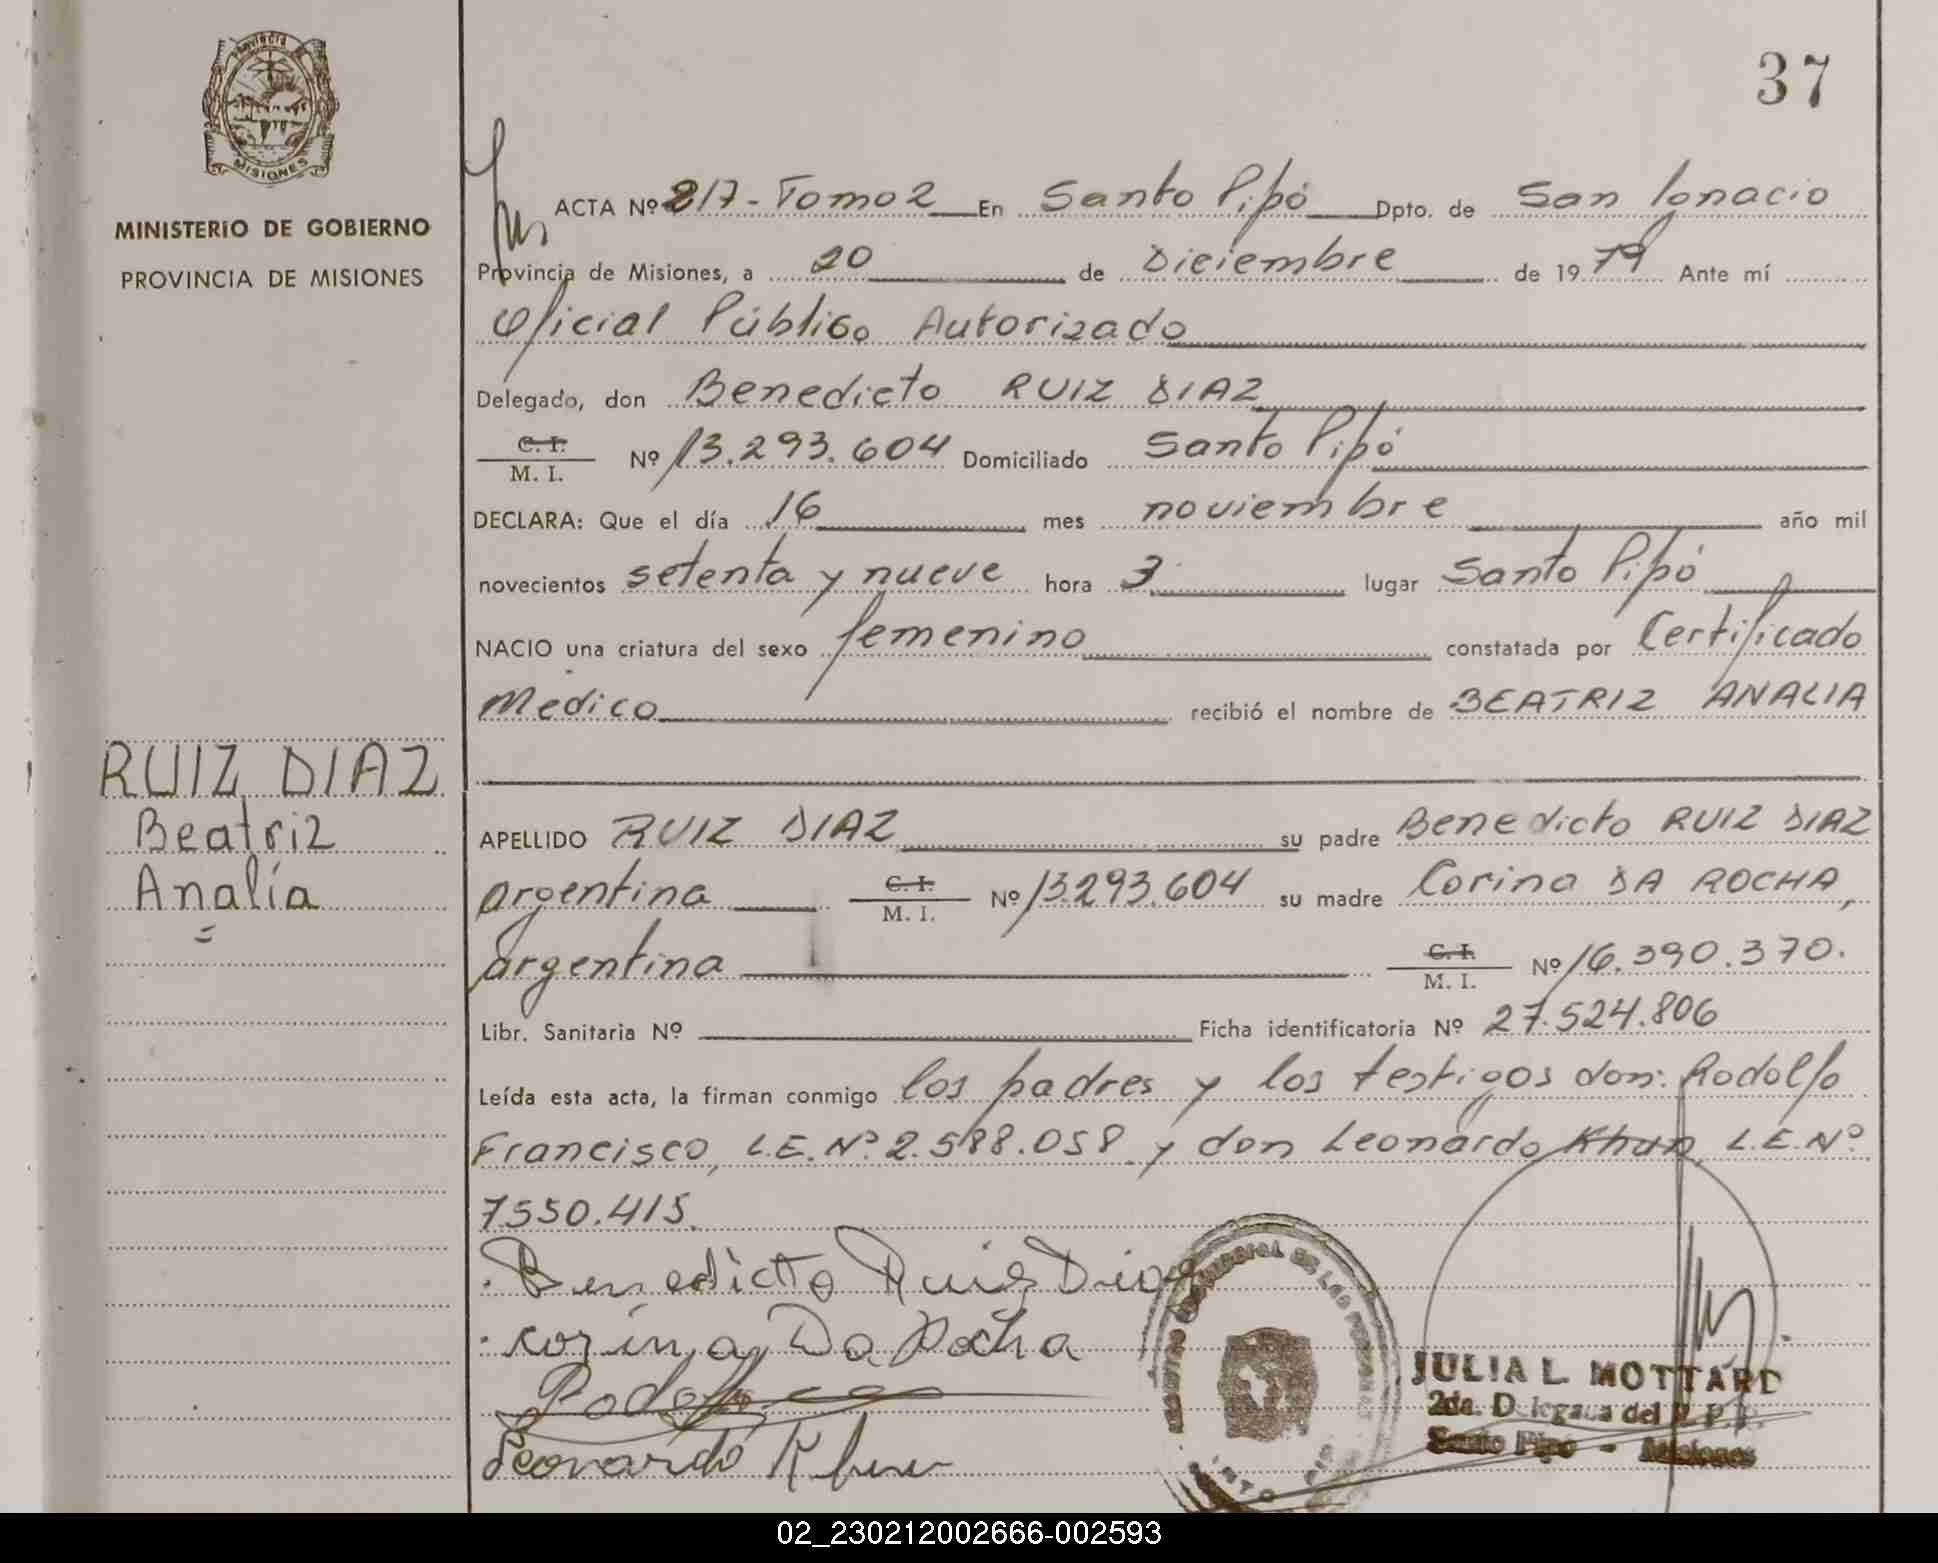 Provincia
MISIONES
MINISTERIO DE GOBIERNO
PROVINCIA DE MISIONES
37
ACTA Nº 217 - Tomo 2 En Santo Pipó Dpto. de San Ignacio
Provincia de Misiones, a 20 de Diciembre de 1979 Ante mí
Oficial Público Autorizado
Delegado, don Benedicto RUIZ DIAZ
C. I.
M. I. Nº 13.293.604 Domiciliado Santo Pipó
DECLARA: Que el día 16 mes noviembre año mil
novecientos setenta y nueve hora 3 lugar Santo Pipó
NACIO una criatura del sexo femenino constatada por Certificado
Medico recibió el nombre de BEATRIZ ANALIA
RUIZ DIAZ
Beatriz
Analía
APELLIDO RUIZ DIAZ su padre Benedicto RUIZ DIAZ
argentina C. I. M. I. Nº 13.293.604 su madre Corina DA ROCHA,
argentina C. I. M. I. Nº 16.390.370.
Libr. Sanitaria Nº Ficha identificatoria Nº 27.524.806
Leída esta acta, la firman conmigo los padres y los testigos don: Rodolfo
Francisco, L.E.Nº 2.588.058 y don Leonardo Khun, L.E.Nº
7550.415.
Benedicto Ruiz Diaz
Korina Da Rocha
Leonardo Khun
DE LAS
JULIA L. MOTTARD
2da. Delegada del R. P. P.
Santo Pipo - Misiones
02_230212002666-002593